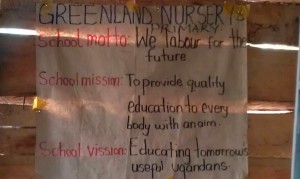 GREENLAND NURSERY &
PRIMARY
School motto: We labour for the
future
School mission: To provide quality
education to every
body with an aim.
School vission: Educating tomorrows
useful ugandans.